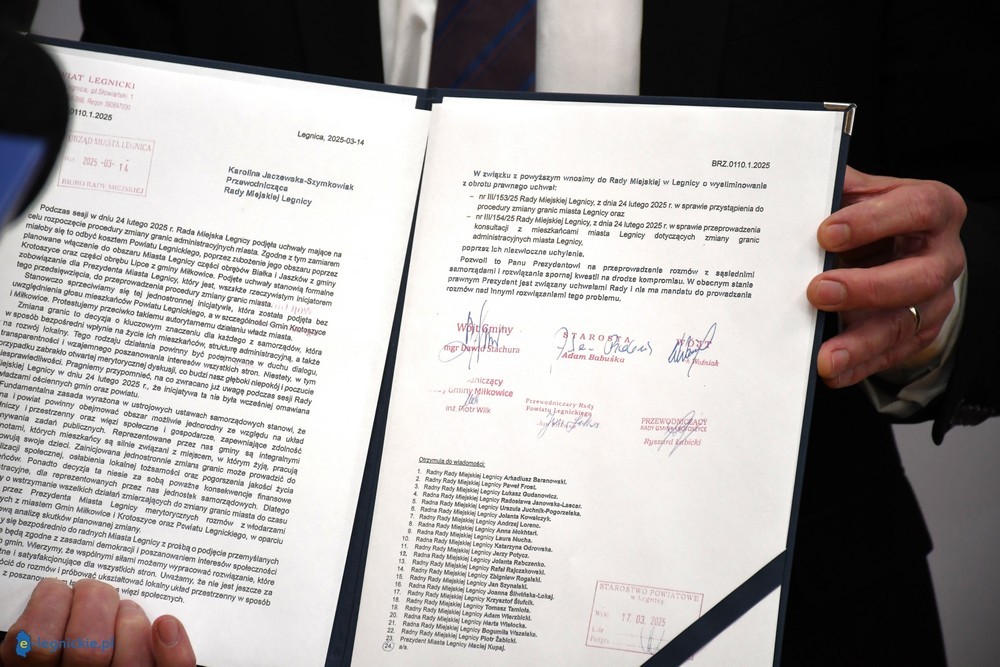 WIAT LEGNICKI
gnica, pl.Słowiański 1
Regon 390647200
.0110.1.2025
Legnica, 2025-03-14
URZĄD MIASTA LEGNICA
2025 -03- 14
BIURO RADY MIEJSKIEJ
Karolina Jaczewska-Szymkowiak
Przewodnicząca
Rady Miejskiej Legnicy
Podczas sesji w dniu 24 lutego 2025 r. Rada Miejska Legnicy podjęła uchwały mające na
celu rozpoczęcie procedury zmiany granic administracyjnych miasta. Zgodne z tym zamiarem
miałoby się to odbyć kosztem Powiatu Legnickiego, poprzez zubożenie jego obszaru poprzez
planowane włączenie do obszaru miasta Legnicy części obrębów Białka i Jaszków z gminy
Krotoszyce oraz części obrębu Lipce z gminy Miłkowice. Podjęte uchwały stanowią formalne
zobowiązanie dla Prezydenta Miasta Legnicy, który jest, wszakże rzeczywistym inicjatorem
tego przedsięwzięcia, do przeprowadzenia procedury zmiany granic miasta.
Stanowczo sprzeciwiamy się tej jednostronnej inicjatywie, która została podjęta bez
uwzględnienia głosu mieszkańców Powiatu Legnickiego, a w szczególności Gmin Krotoszyce
i Miłkowice. Protestujemy przeciwko takiemu autorytarnemu działaniu władz miasta.
Zmiana granic to decyzja o kluczowym znaczeniu dla każdego z samorządów, która
w sposób bezpośredni wpłynie na życie ich mieszkańców, strukturę administracyjną, a także
na rozwój lokalny. Tego rodzaju działania powinny być podejmowane w duchu dialogu,
transparentności i wzajemnego poszanowania interesów wszystkich stron. Niestety, w tym
przypadku zabrakło otwartej merytorycznej dyskusji, co budzi nasz głęboki niepokój i poczucie
niesprawiedliwości. Pragniemy przypomnieć, na co zwracano już uwagę podczas sesji Rady
Miejskiej Legnicy w dniu 24 lutego 2025 r., że inicjatywa ta nie była wcześniej omawiana
władzami ościennych gmin oraz powiatu.
Fundamentalna zasada wyrażona w ustrojowych ustawach samorządowych stanowi, że
a i powiat powinny obejmować obszar możliwie jednorodny ze względu na układ
niczy i przestrzenny oraz więzi społeczne i gospodarcze, zapewniające zdolność
ywania zadań publicznych. Reprezentowane przez nas gminy są integralnymi
notami, których mieszkańcy są silnie związani z miejscem, w którym żyją, pracują
owują swoje dzieci. Zainicjowana jednostronnie zmiana granic może prowadzić do
lizacji społecznej, osłabienia lokalnej tożsamości oraz pogorszenia jakości życia
ńców. Ponadto decyzja ta niesie za sobą poważne konsekwencje finansowe
tracyjne, dla reprezentowanych przez nas jednostek samorządowych. Dlatego
y o wstrzymanie wszelkich działań zmierzających do zmiany granic miasta do czasu
przez Prezydenta Miasta Legnicy merytorycznych rozmów z włodarzami
ych z miastem Gmin Miłkowice i Krotoszyce oraz Powiatu Legnickiego, w oparciu
ową analizę skutków planowanej zmiany.
y się bezpośrednio do radnych Miasta Legnicy z prośbą o podjęcie przemyślanych
e będą zgodne z zasadami demokracji i poszanowaniem interesów społeczności
gmin. Wierzymy, że wspólnymi siłami możemy wypracować rozwiązanie, które
ne i satysfakcjonujące dla wszystkich stron. Uważamy, że nie jest jeszcze za
ócić do rozmów i próbować ukształtować lokalny układ przestrzenny w sposób
z poszanowaniem
więzi społecznych.
BRZ.0110.1.2025
W związku z powyższym wnosimy do Rady Miejskiej w Legnicy o wyeliminowanie
z obrotu prawnego uchwał:
– nr III/153/25 Rady Miejskiej Legnicy, z dnia 24 lutego 2025 r. w sprawie przystąpienia do
procedury zmiany granic miasta Legnicy oraz
– nr III/154/25 Rady Miejskiej Legnicy, z dnia 24 lutego 2025 r. w sprawie przeprowadzenia
konsultacji z mieszkańcami miasta Legnicy dotyczących zmiany granic
administracyjnych miasta Legnicy,
poprzez ich niezwłoczne uchylenie.
Pozwoli to Panu Prezydentowi na przeprowadzenie rozmów z sąsiednimi
samorządami i rozwiązanie spornej kwestii na drodze kompromisu. W obecnym stanie
prawnym Prezydent jest związany uchwałami Rady i nie ma mandatu do prowadzenia
rozmów nad innymi rozwiązaniami tego problemu.
Wójt Gminy
mgr Dawid Stachura
STAROSTA
Adam Babuśka
WÓJT
Woźniak
niczący
Gminy Miłkowice
inż. Piotr Wilk
Przewodniczący Rady
Powiatu Legnickiego
PRZEWODNICZĄCY
RADY GMINY KROTOSZYCE
Ryszard Łabicki
Otrzymują do wiadomości:
1. Radny Rady Miejskiej Legnicy Arkadiusz Baranowski.
2. Radny Rady Miejskiej Legnicy Paweł Frost.
3. Radny Rady Miejskiej Legnicy Łukasz Gudanowicz.
4. Radna Rady Miejskiej Legnicy Radosława Janowska-Lascar.
5. Radna Rady Miejskiej Legnicy Urszula Juchnik-Pogorzelska.
6. Radna Rady Miejskiej Legnicy Jolanta Kowalczyk.
7. Radny Rady Miejskiej Legnicy Andrzej Lorenc.
8. Radna Rady Miejskiej Legnicy Anna Mokhtari.
9. Radna Rady Miejskiej Legnicy Laura Nucha.
10. Radna Rady Miejskiej Legnicy Katarzyna Odrowska.
11. Radny Rady Miejskiej Legnicy Jerzy Potycz.
12. Radna Rady Miejskiej Legnicy Jolanta Rabczenko.
13. Radny Rady Miejskiej Legnicy Rafał Rajczakowski.
14. Radny Rady Miejskiej Legnicy Zbigniew Rogalski.
15. Radny Rady Miejskiej Legnicy Jan Szynalski.
16. Radna Rady Miejskiej Legnicy Joanna Śliwińska-Łokaj.
17. Radny Rady Miejskiej Legnicy Krzysztof Ślufcik.
18. Radny Rady Miejskiej Legnicy Tomasz Tamioła.
19. Radny Rady Miejskiej Legnicy Adam Wierzbicki.
20. Radna Rady Miejskiej Legnicy Marta Wisłocka.
21. Radna Rady Miejskiej Legnicy Bogumiła Wszelaka.
22. Radny Rady Miejskiej Legnicy Piotr Żabicki.
23. Prezydent Miasta Legnicy Maciej Kupaj.
24. a/s.
STAROSTWO POWIATOWE
w Legnicy
17. 03. 2025
e-legnickie.pl